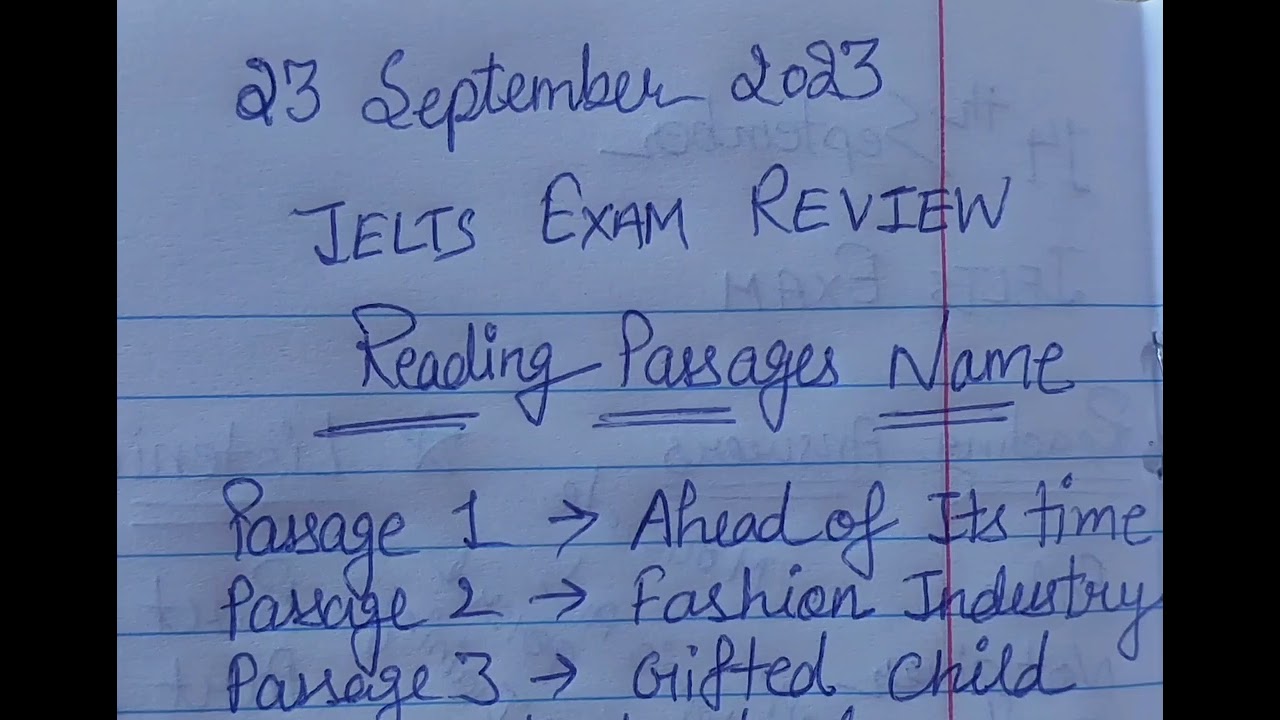 23 September 2023
IELTS EXAM REVIEW
Reading Passages Name
Passage 1 → Ahead of Its time
Passage 2 → Fashion Industry
Passage 3 → Gifted child